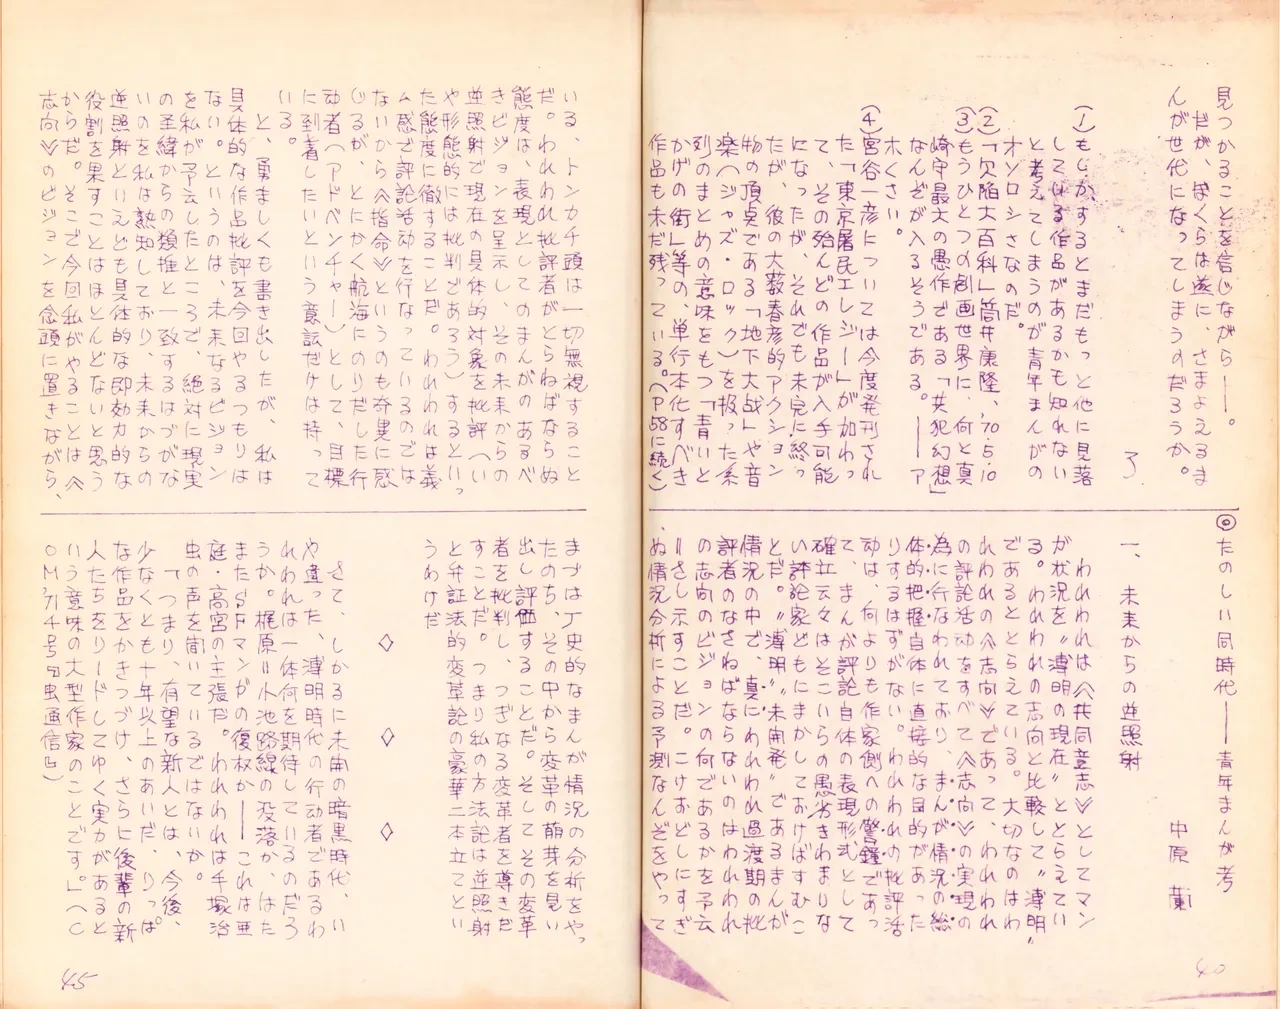 見つかることを信じながら――。
だが、ぼくらは遂に、さまよえるま
んが世代になってしまうのだろうか。
了
(1)もしかするとまだもっと他に見落
している作品があるかも知れない
と考えてしまうのが青年まんがの
オソロシさなのだ。
(2)「欠陥大百科」筒井康隆、'70.5.10
(3)もうひとつの創画世界に、何と真
崎守最大の愚作である「共犯幻想」
なんぞが入るそうである。――ア
ホくさい。
(4)宮谷一彦については今度発刊され
た「東京屠民エレジー」が加わっ
て、その殆んどの作品が入手可能
になったが、それでも未完に終っ
たが、彼の大藪春彦的アクション
物の頂点である「地下大戦」や音
楽(ジャズ・ロック)を扱った系
列のまとめの意味をもつ「青いと
かげの街」等の、単行本化すべき
作品も未だ残っている。(P58に続く)
◎たのしい同時代――青年まんが考
中原 薫
一、未来からの逆照射
われわれは〈共同意志〉としてマン
が状況を〝薄明の現在〟ととらえてい
る。われわれの志向と比較して〝薄明〟
であるととらえている。大切なのはわ
れわれの〈志向〉であって、われわれ
の評論活動をすべて〈志向〉の実現の
為に行なわれており、まんが情況の総
体的把握自体に直接的な目的があった
りするはずがない。われわれの批評活
動は、何よりも作家側への警鐘であっ
て、まんが評論自体の表現形式として
確立云々はそこいらの愚劣きわまりな
い評論家どもにまかしておけばすむこ
とだ。〝薄明〟〝未開発〟であるまんが
情況の中で、真にわれわれ過渡期の批
評者のなさねばならないのはわれわれ
の志向のビジョンの何であるかを予云
〓さし示すことだ。こけおどしにすぎ
ぬ情況分析による予測なんぞをやって
いる、トンカチ頭は一切無視すること
だ。われわれ批評者がとらねばならぬ
態度は、表現としてのまんがのあるべ
きビジョンを呈示し、その未来からの
逆照射で現在の具体的対象を批評(い
や形態的には批判であろう)するといっ
た態度に徹することだ。われわれは義
ム感で評論活動を行なっているのでは
ないから〈指命〉というのも奇異に感
じるが、とにかく航海にのりだした行
動者(アドベンチャー)として、目標
に到着したいという意識だけは持って
いる。
と、勇ましくも書き出したが、私は
具体的な作品批評を今回やるつもりは
ない。というのは、未来なるビジョン
を私が予云したところで、絶対に現実
の経緯からの類推と一致するはづがな
いのを私は熟知しており、未来からの
逆照射といえども具体的な即効力的な
役割を果すことはほとんどないと思う
からだ。そこで今回私がやることは〈
志向〉のビジョンを念頭に置きながら、
まづは丁史的なまんが情況の分析をやっ
たのち、その中から変革の萌芽を見い
出し評価することだ。そしてその変革
者を批判し、つぎなる変革者を導きだ
すことだ。つまり私の方法論は逆照射
と弁証法的変革論の豪華二本立てとい
うわけだ
◇ ◇ ◇
さて、しかるに未開の暗黒時代、い
や違った、薄明時代の行動者であるわ
れわれは一体何を期待しているのだろ
うか。梶原=小池路線の没落か、はた
またSFマンがの復権か――これは亜
庭・高宮の主張だ。われわれは手塚治
虫の声を聞いているではないか。
「つまり、有望な新人とは、今後、
少なくとも十年以上のあいだ、りっぱ
な作品をかきつづけ、さらに後輩の新
人たちをリードしてゆく実力があると
いう意味の大型作家のことです。」(C
OM'71 4号「虫通信」)
45
40